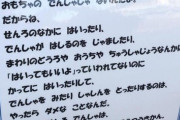 おもちゃの でんしゃじゃ ないんだよ。
だからね、
せんろのなかに はいったり、
でんしゃが はしるのを じゃましたり、
まわりのどうろや おうちや ちゅうしゃじょうなんかに
「はいってもいいよ」っていわれてないのに
かってに はいったりして、
でんしゃを みたり しゃしんを とったりするのは、
やったら ダメな ことなんだ。